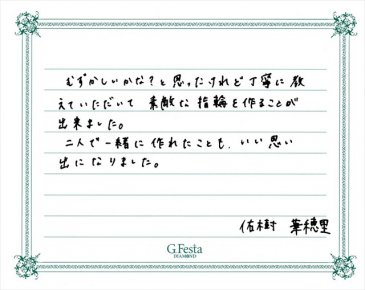 むずかしいかな?と思ったけれど丁寧に教
えていただいて 素敵な指輪を作ることが
出来ました。
二人で一緒に作れたことも、いい思い
出になりました。
佑樹 華穂里
G.Festa
DIAMOND